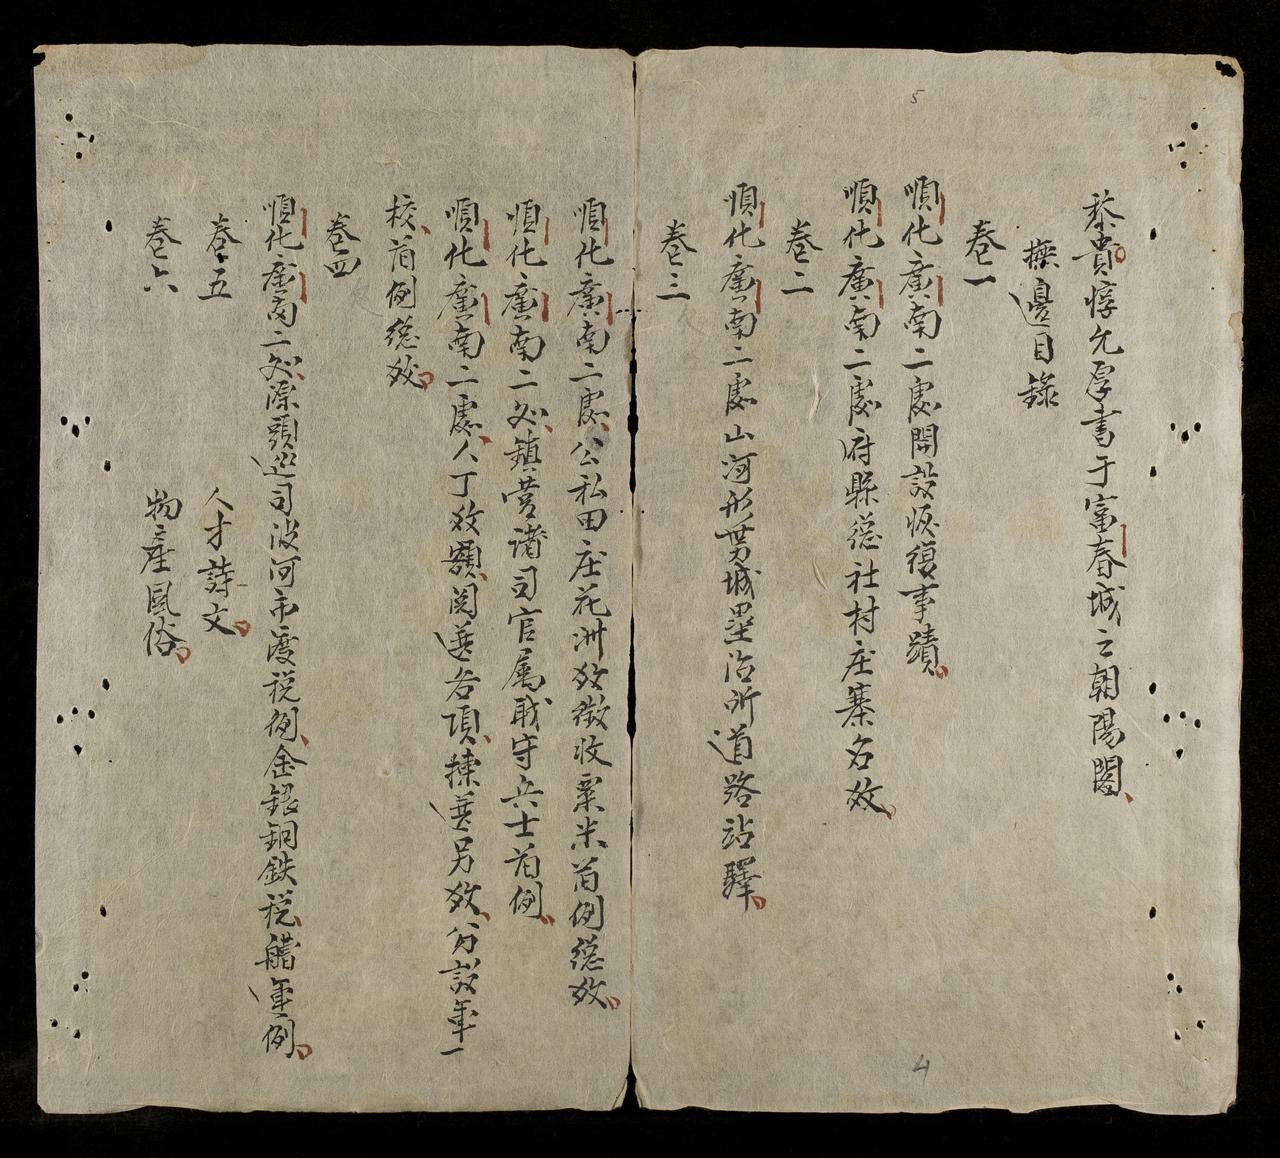 5
黎貴惇允厚書于富春城之朝陽閣
撫邊目錄
卷一
順化廣南二處開設恢復事蹟
順化廣南二處府縣總社村庄寨名数
卷二
順化廣南二處山河形势城壘治所道路站驛
卷三
順化廣南二處公私田庄花洲数徵收粟米前例總数
順化廣南二処鎮营諸司官属职守兵士前例
順化廣南二處人丁数額閱選各項揀選另数分設軍一
校前例總数
卷四
順化廣南二処源頭巡司波河市度税例金銀銅鉄税艚運例
卷五 人才詩文
卷六 物產風俗
4